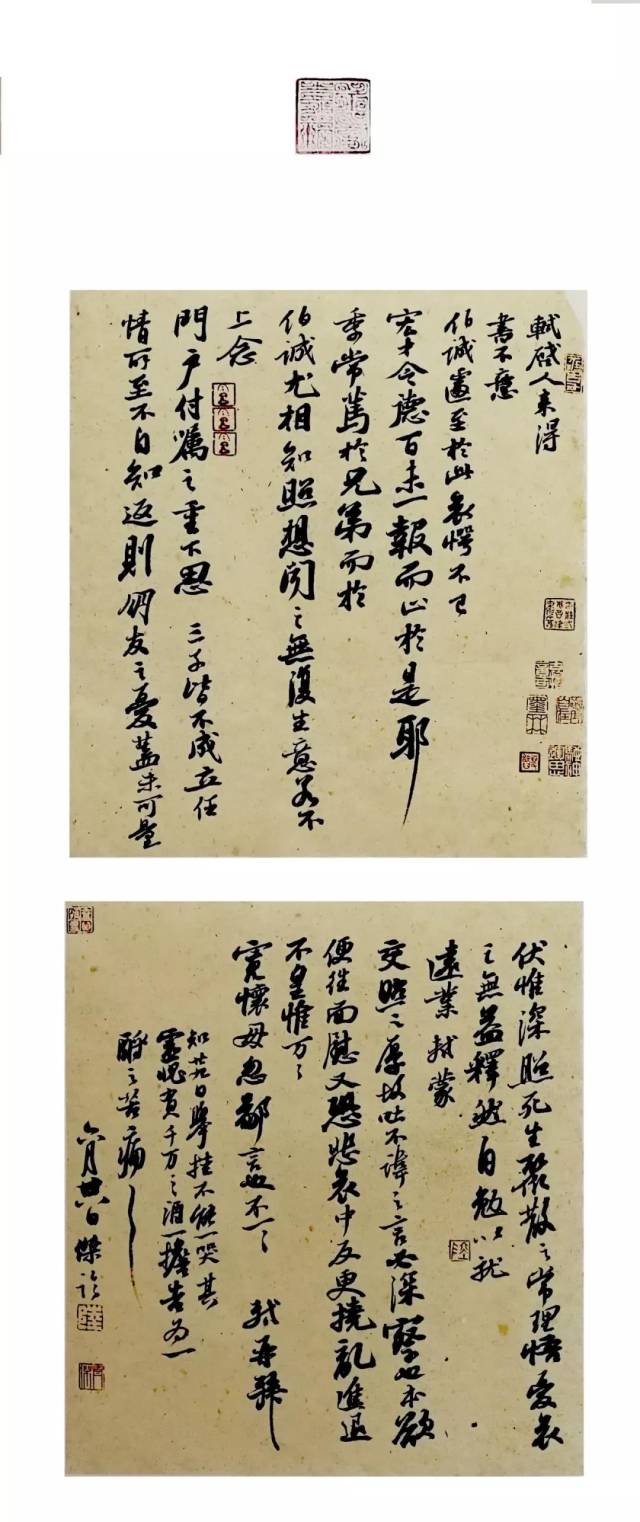 軾启人来得
書不意
伯誠遽至於此哀愕不已
宏才令德百未一報而止於是耶
季常篤於兄弟而於
伯誠尤相知照想聞之無復生意若不
上念
門户付嘱之重下思三子皆不成立任
情所至不自知返則朋友之憂蓋未可量
伏惟深照死生聚散之常理悟憂哀
之無益釋然自勉以就
遠業軾蒙
交照之厚故吐不諱之言必深察也本欲
便往面慰又恐悲哀中反更撓亂進退
不皇惟万万
寬懷毋忽鄙言也不一一軾再拜
知廿日舉掛不能一哭其
靈愧負千万千万酒一擔告为一
酹之苦痛
六月廿八日傑临